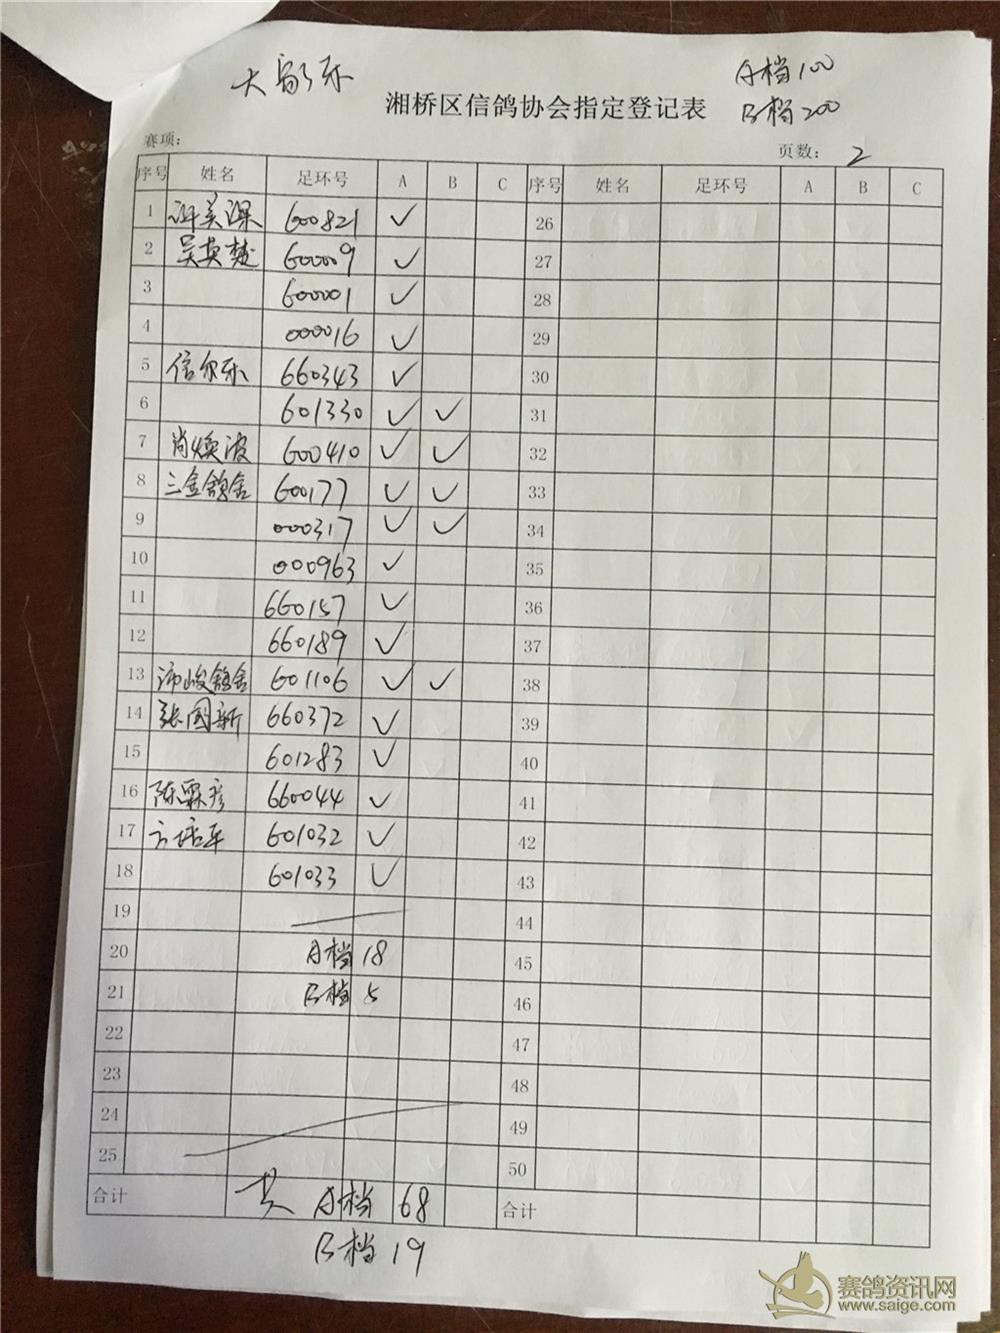 大彩乐
A档100
湘桥区信鸽协会指定登记表
B档200
赛项：
页数： 2
序号 姓名 足环号 A B C 序号 姓名 足环号 A B C
1 600821 ✓ 26
2 吴英楚 600009 ✓ 27
3 600001 ✓ 28
4 000016 ✓ 29
5 信尔乐 660343 ✓ 30
6 601330 ✓ ✓ 31
7 肖焕波 600410 ✓ ✓ 32
8 三金鸽舍 600177 ✓ ✓ 33
9 000317 ✓ ✓ 34
10 000963 ✓ 35
11 660157 ✓ 36
12 660189 ✓ 37
13 沛峻鸽舍 601106 ✓ ✓ 38
14 张国新 660372 ✓ 39
15 601283 ✓ 40
16 陈霖彦 660044 ✓ 41
17 方培平 601032 ✓ 42
18 601033 ✓ 43
19 44
20 A档 18 45
21 B档 5 46
22 47
23 48
24 49
25 50
合计 共 A档 68 合计
B档 19
赛鸽资讯网
www.saige.com